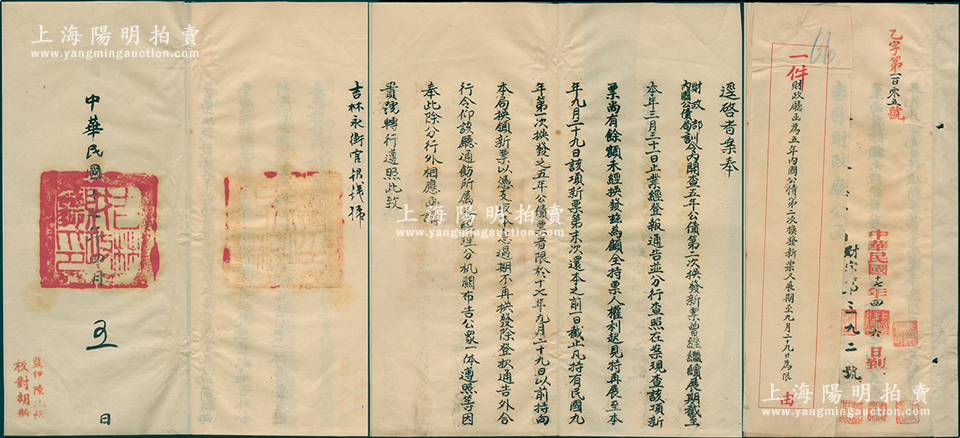 乙字第一百零五號
中華民國十七年四月十六日到
財字第三九二號
一件財政廳函為五年內國公債第二次換發新票又展期至九月二十九日為限
由
逕啓者案奉
財政部
內國公債局訓令內開查五年公債第二次換發新票曾經繼續展期截至
本年三月三十一日止業經登報通告並分行查照在案現查該項新
票尚有餘額未經換發茲為顧全持票人權利起見特再展至本
年九月二十九日該項新票第末次還本之前一日截止凡持有民國九
年第一次換發之五年公債票者限於十七年九月二十九日以前持向
本局換領新票以憑支取本息過期不再換發除登報通告外合
行令仰該廳通飭所屬暨經理分機關布告公眾一体遵照等因
奉此除分行外相應函請
貴號轉行遵照此致
吉林永衡官銀錢號
中華民國十七年四月
日
監印陸
校對胡
上海陽明拍賣
www.yangmingauction.com
上海陽明拍賣
www.yangmingauction.com
上海陽明拍賣
www.yangmingauction.com
上海陽明拍賣
www.yangmingauction.com